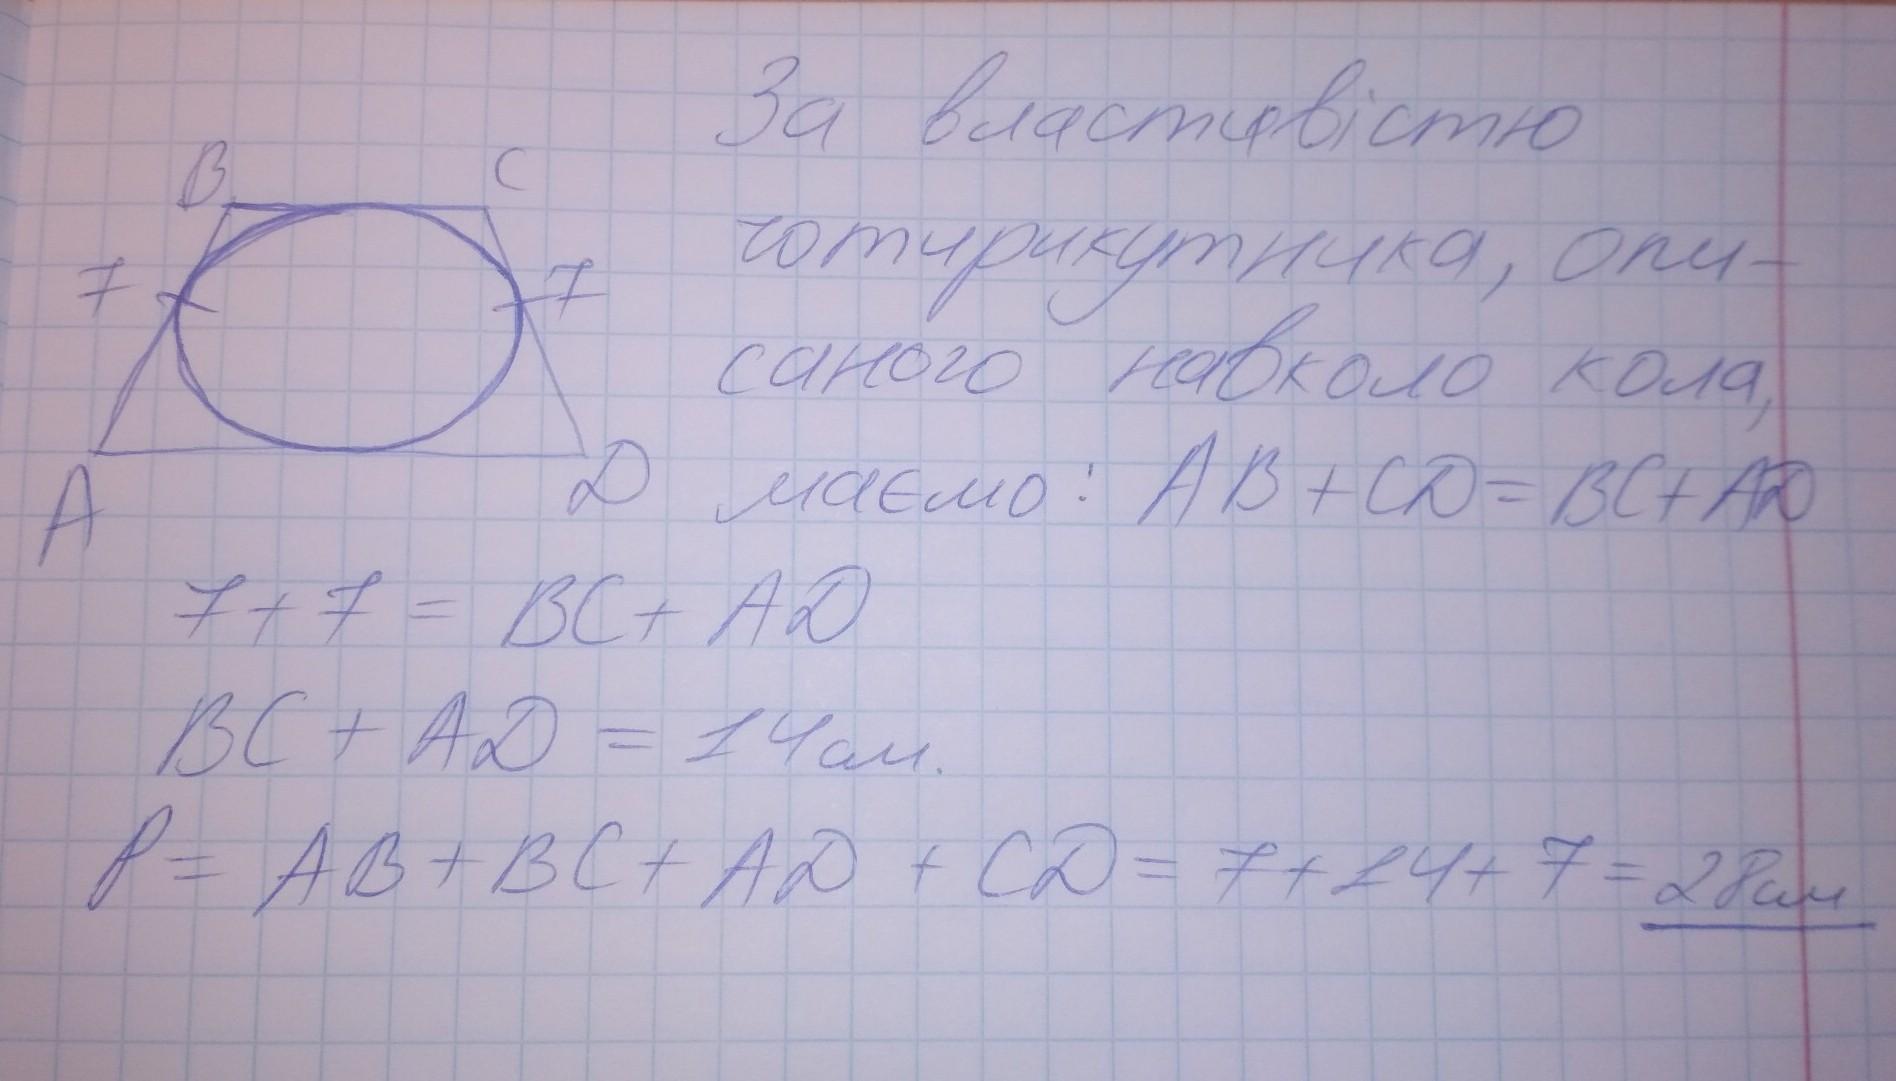 За властивістю
B C
чотирикутника, опи-
7 7
саного навколо кола,
A D
маємо: AB + CD = BC + AD
7 + 7 = BC + AD
BC + AD = 14 см.
P = AB + BC + AD + CD = 7 + 14 + 7 = 28 см